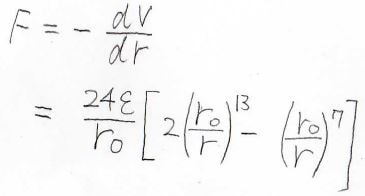 F = - dV/dr
= 24ε/r₀ [ 2(r₀/r)¹³ - (r₀/r)⁷ ]